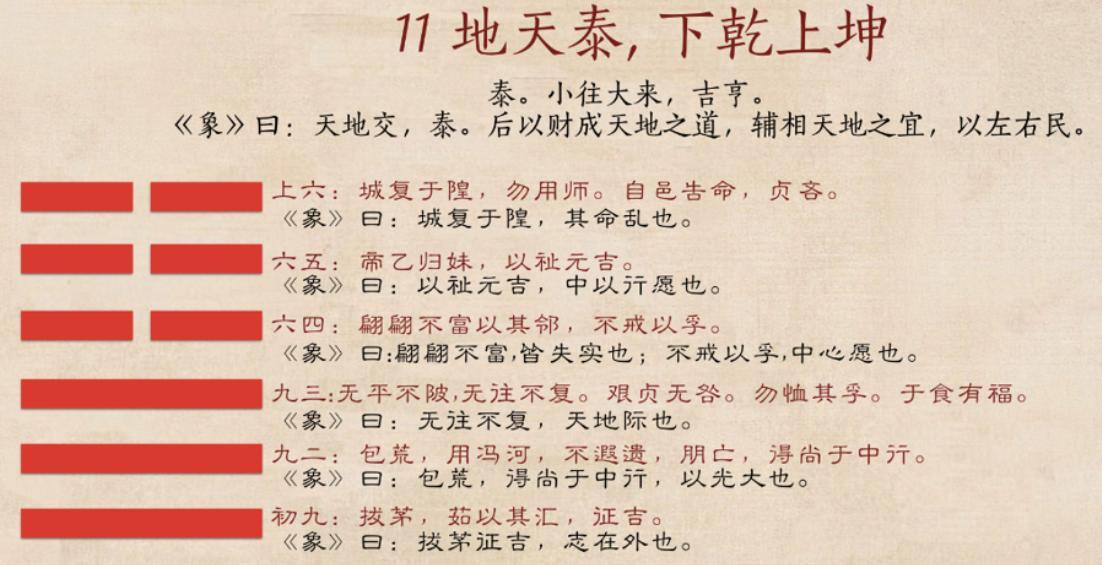 11 地天泰, 下乾上坤
泰。小往大来，吉亨。
《象》曰：天地交，泰。后以财成天地之道，辅相天地之宜，以左右民。
上六：城复于隍，勿用师。自邑告命，贞吝。
《象》曰：城复于隍，其命乱也。
六五：帝乙归妹，以祉元吉。
《象》曰：以祉元吉，中以行愿也。
六四：翩翩不富以其邻，不戒以孚。
《象》曰:翩翩不富,皆失实也；不戒以孚,中心愿也。
九三:无平不陂,无往不复。艰贞无咎。勿恤其孚。于食有福。
《象》曰：无往不复，天地际也。
九二：包荒，用冯河，不遐遗，朋亡，得尚于中行。
《象》曰：包荒，得尚于中行，以光大也。
初九：拔茅，茹以其汇，征吉。
《象》曰：拔茅征吉，志在外也。